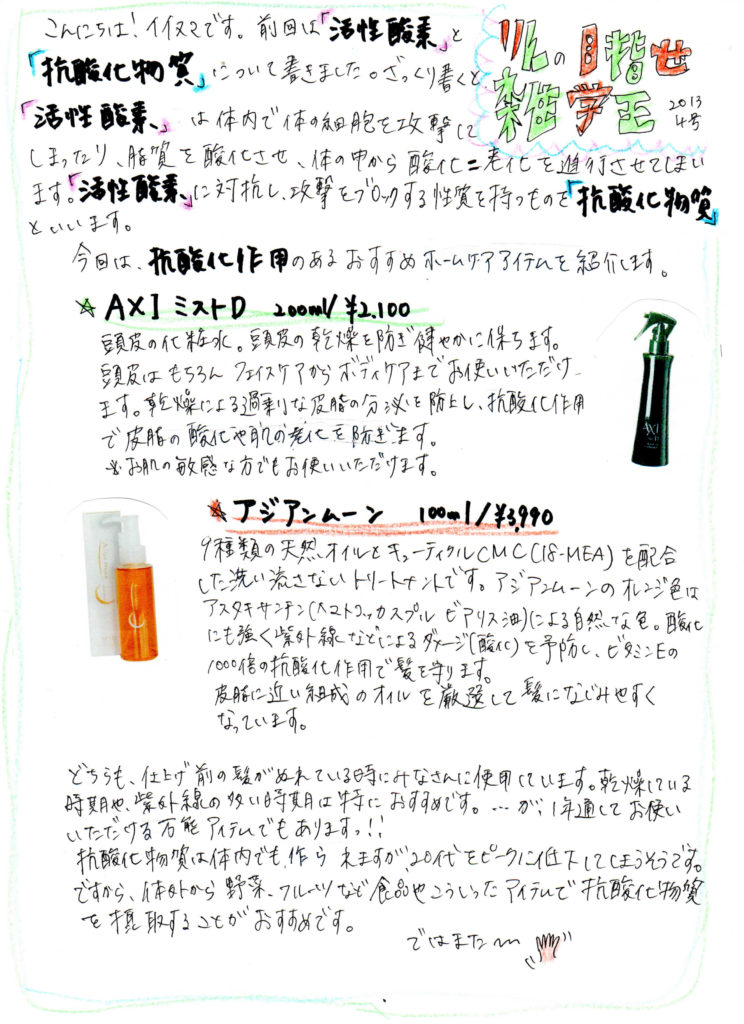 こんにちは!イイヌマです。前回は「活性酸素」と
「抗酸化物質」について書きました。ざっくり書くと、
「活性酸素」は体内で体の細胞を攻撃して
しまったり、脂質を酸化させ、体の中から酸化=老化を進行させてしまい
ます。「活性酸素」に対抗し、攻撃をブロックする性質を持つものを「抗酸化物質」
といいます。
の目指せ
雑学王
2013
4号
今回は、抗酸化作用のあるおすすめホームケアアイテムを紹介します。
☆ AXI ミストD 200ml/¥2,100
頭皮の化粧水。頭皮の乾燥を防ぎ健やかに保ちます。
頭皮はもちろんフェイスケアからボディケアまでお使いいただけ
ます。乾燥による過剰な皮脂の分泌を防止し、抗酸化作用
で皮脂の酸化や肌の老化を防ぎます。
※お肌の敏感な方でもお使いいただけます。
AXI
☆ アジアンムーン 100ml/¥3,990
9種類の天然オイルとキューティクルCMC(18-MEA)を配合
した洗い流さないトリートメントです。アジアンムーンのオレンジ色は
アスタキサンチン(ヘマトコッカスプルビアリス油)による自然な色。酸化
にも強く紫外線などによるダメージ(酸化)を予防し、ビタミンEの
1000倍の抗酸化作用で髪を守ります。
皮脂に近い組成のオイルを厳選して髪になじみやすく
なっています。
どちらも、仕上げ前の髪がぬれている時にみなさんに使用しています。乾燥している
時期や、紫外線の多い時期は特におすすめです。…が、1年通してお使い
いただける万能アイテムでもありますっ!!
抗酸化物質は体内でも作られますが、20代をピークに低下してしまうそうです。
ですから、体外から野菜、フルーツなど食品やこういったアイテムで抗酸化物質
を摂取することがおすすめです。
ではまた〜